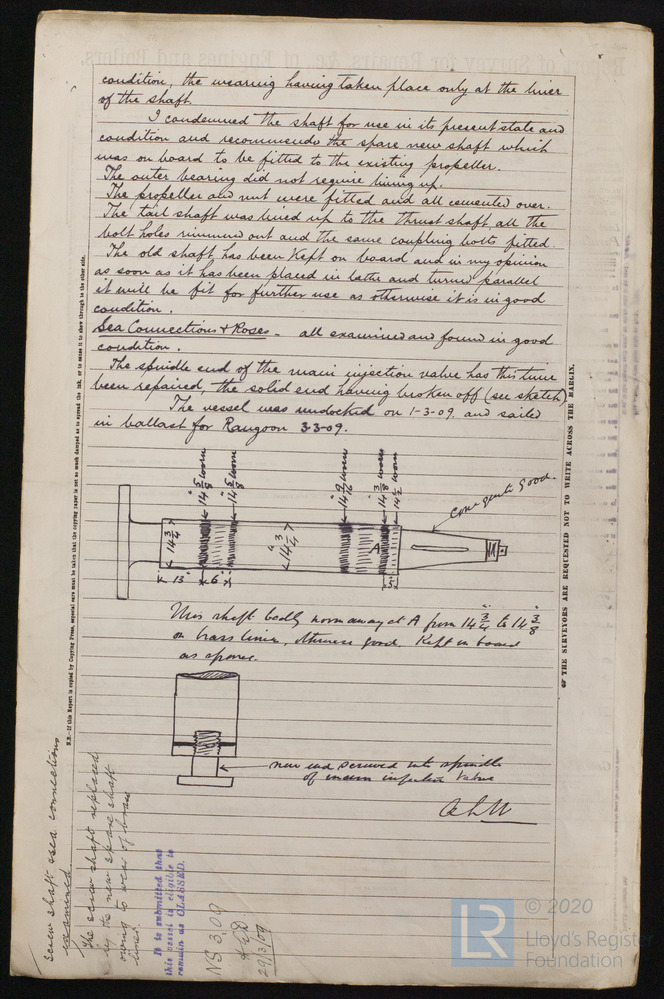 condition, the wearing having taken place only at the liner
of the shaft.
I condemned the shaft for use in its present state and
condition and recommended the spare new shaft which
was on board to be fitted to the existing propeller.
The outer bearing did not require lining up.
The propeller and nut were fitted and all cemented over.
The tail shaft was lined up to the thrust shaft, all the
bolt holes rimmed out and the same coupling bolts fitted.
The old shaft has been kept on board and in my opinion
as soon as it has been placed in lathe and turned parallel
it will be fit for further use as otherwise it is in good
condition.
Sea Connections & Roses - all examined and found in good
condition.
The spindle end of the main injection valve has this time
been repaired, the solid end having broken off (see sketch)
The vessel was undocked on 1-3-09, and sailed
in ballast for Rangoon 3-3-09.
14 5/8 worn
14 5/8 worn
14 9/16 worn
14 3/8 worn
14 1/2 worn
cone quite good.
14 3/4
14 3/4"
A
13"
6"
5"
This shaft badly worn away at A from 14 3/4" to 14 3/8"
on brass liner, otherwise good. Kept on board
as spare.
new end screwed into spindle
of main injection valve
N.B.—If this Report is copied by Copying Press, especial care must be taken that the copying paper is not so much damped as to spread the ink, or to cause it to show through to the other side.
THE SURVEYORS ARE REQUESTED NOT TO WRITE ACROSS THE MARGIN.
Screw shaft & sea connections
examined.
The screw shaft replaced
by the new spare shaft
owing to wear of brass
liner.
It is submitted that
this vessel is eligible to
remain as CLASSED.
NS 3.09
29/3/09
LR
© 2020
Lloyd's Register
Foundation